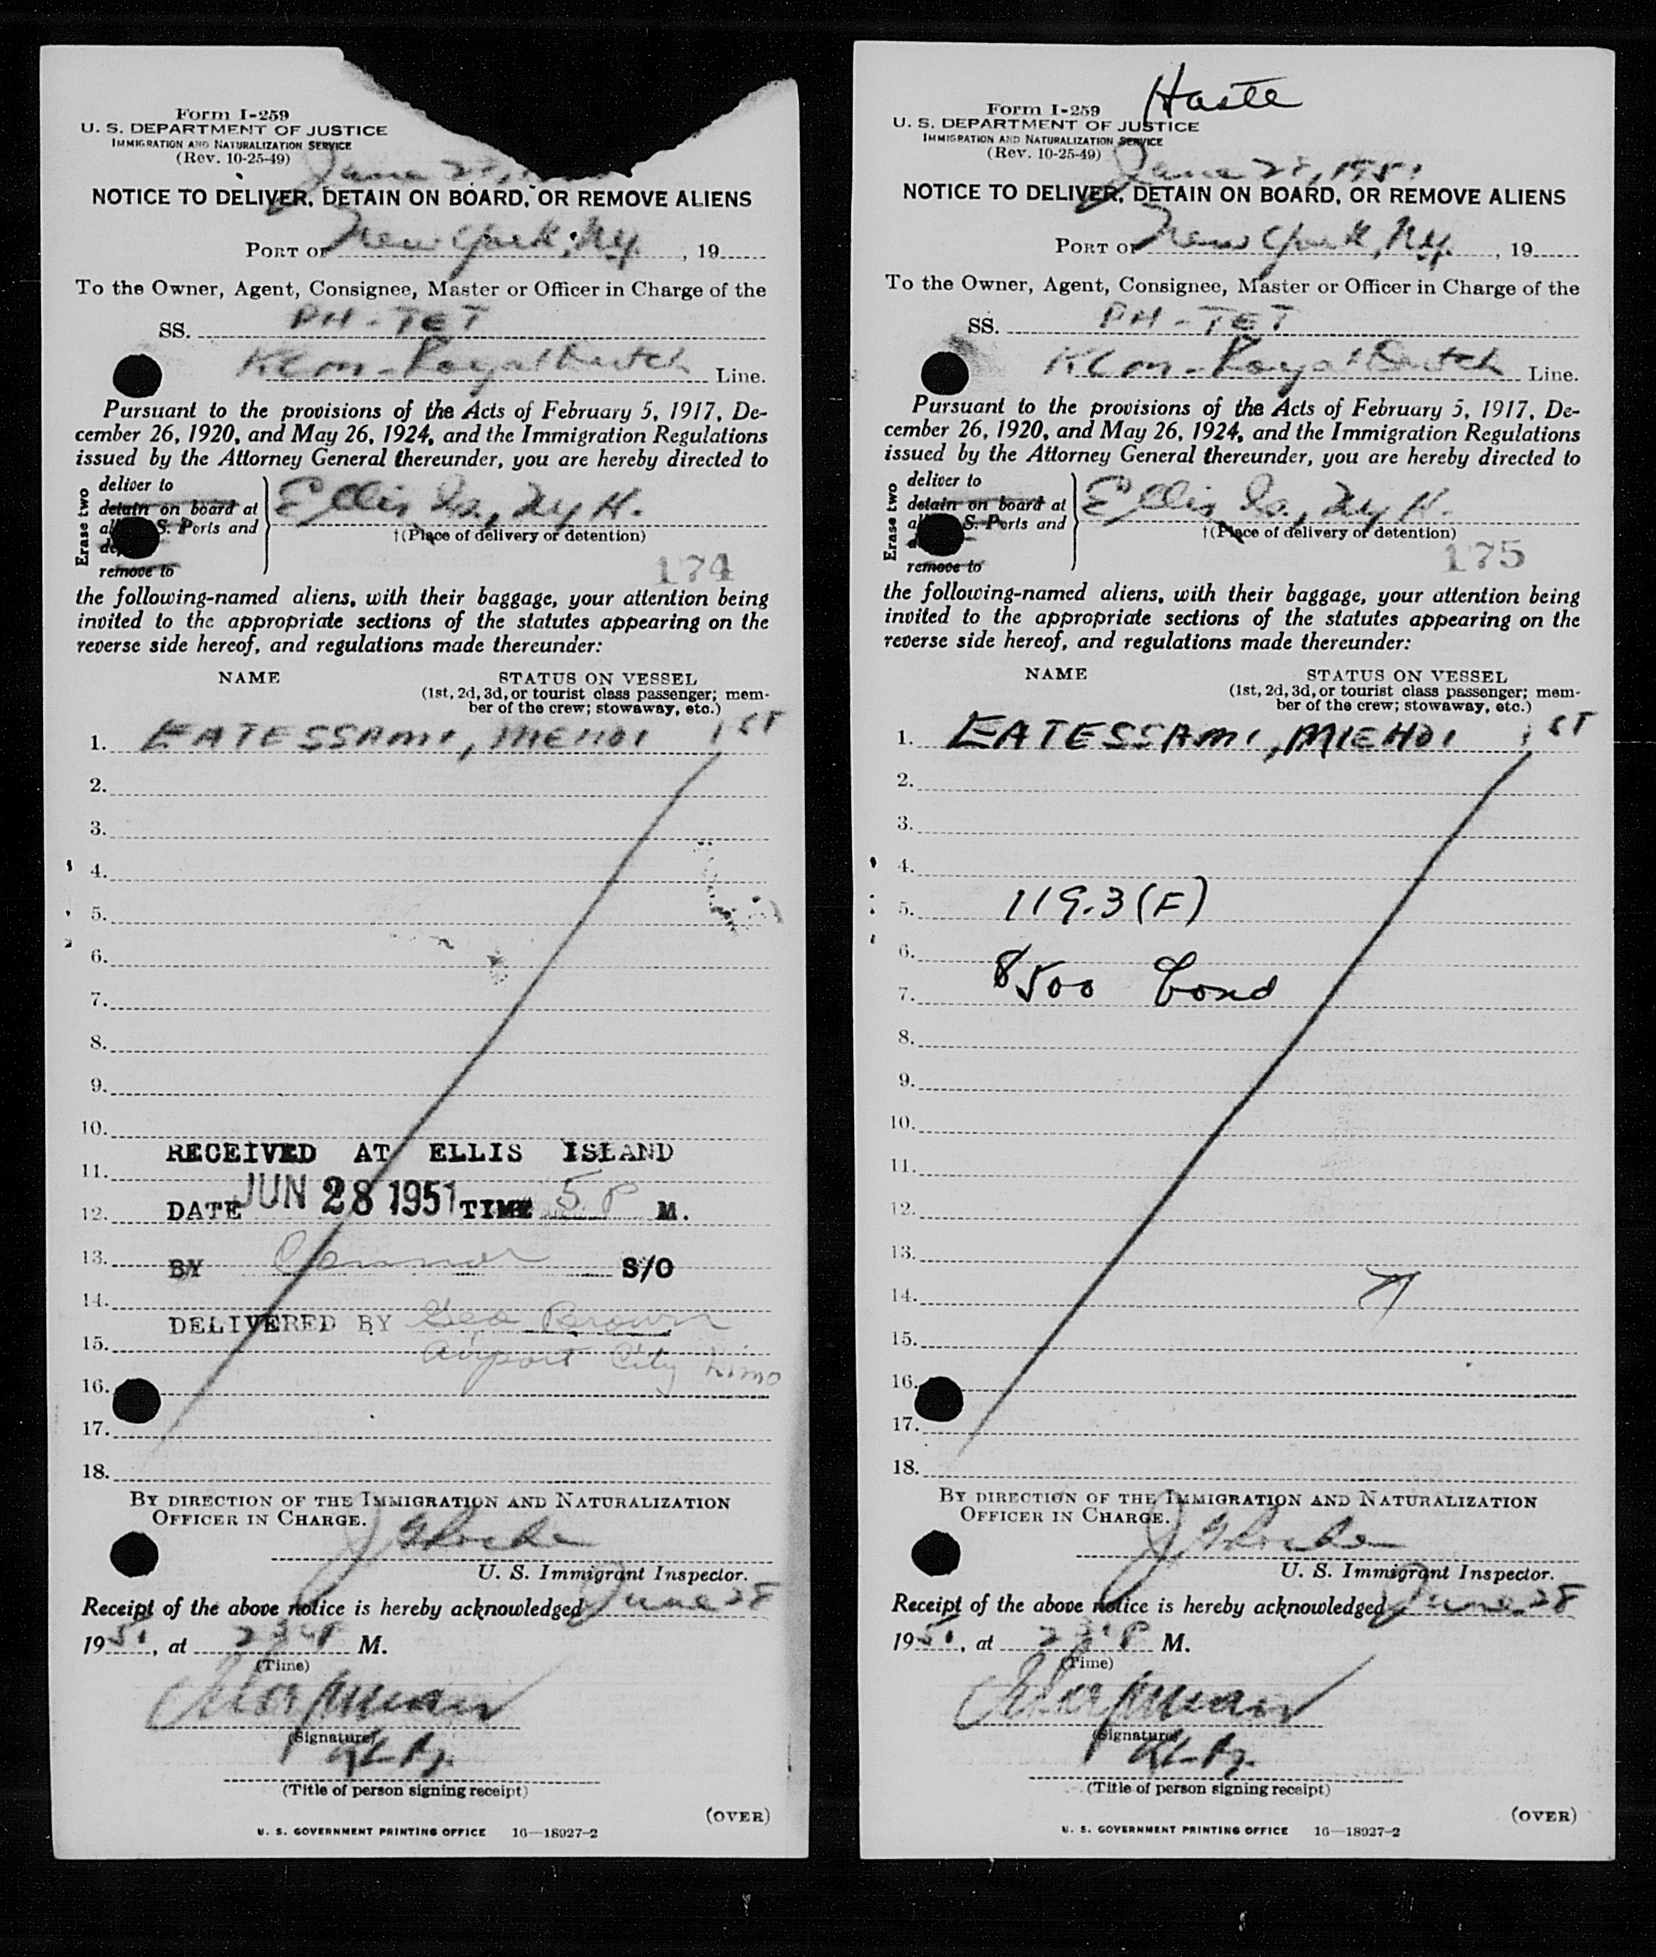 Form I-259
U. S. DEPARTMENT OF JUSTICE
IMMIGRATION AND NATURALIZATION SERVICE
(Rev. 10-25-49)
June 28,
NOTICE TO DELIVER, DETAIN ON BOARD, OR REMOVE ALIENS
PORT OF New York, N.Y. , 19
To the Owner, Agent, Consignee, Master or Officer in Charge of the
SS. PH-TET
KLM-Royal Dutch Line.
Pursuant to the provisions of the Acts of February 5, 1917, De-
cember 26, 1920, and May 26, 1924, and the Immigration Regulations
issued by the Attorney General thereunder, you are hereby directed to
Erase two
deliver to
detain on board at
S. Ports and
remove to
Ellis Is., NY H.
†(Place of delivery or detention)
174
the following-named aliens, with their baggage, your attention being
invited to the appropriate sections of the statutes appearing on the
reverse side hereof, and regulations made thereunder:
NAME STATUS ON VESSEL
(1st, 2d, 3d, or tourist class passenger; mem-
ber of the crew; stowaway, etc.)
1. EATESSAMI, MEHDI 1ST
2.
3.
4.
5.
6.
7.
8.
9.
10.
RECEIVED AT ELLIS ISLAND
11.
12. DATE JUN 28 1951 TIME 5 P M.
13. BY Connor S/O
14.
DELIVERED BY Geo Brown
15. Airport City Limo
16.
17.
18.
BY DIRECTION OF THE IMMIGRATION AND NATURALIZATION
OFFICER IN CHARGE.
U. S. Immigrant Inspector.
Receipt of the above notice is hereby acknowledged June 28
1951, at P M.
(Time)
Chapman
(Signature)
(Title of person signing receipt)
(OVER)
U. S. GOVERNMENT PRINTING OFFICE 16—18027-2
Haste
Form I-259
U. S. DEPARTMENT OF JUSTICE
IMMIGRATION AND NATURALIZATION SERVICE
(Rev. 10-25-49)
June 28, 1951
NOTICE TO DELIVER, DETAIN ON BOARD, OR REMOVE ALIENS
PORT OF New York, N.Y. , 19
To the Owner, Agent, Consignee, Master or Officer in Charge of the
SS. PH-TET
KLM-Royal Dutch Line.
Pursuant to the provisions of the Acts of February 5, 1917, De-
cember 26, 1920, and May 26, 1924, and the Immigration Regulations
issued by the Attorney General thereunder, you are hereby directed to
Erase two
deliver to
detain on board at
S. Ports and
remove to
Ellis Is., NY H.
†(Place of delivery or detention)
175
the following-named aliens, with their baggage, your attention being
invited to the appropriate sections of the statutes appearing on the
reverse side hereof, and regulations made thereunder:
NAME STATUS ON VESSEL
(1st, 2d, 3d, or tourist class passenger; mem-
ber of the crew; stowaway, etc.)
1. EATESSAMI, MEHDI 1ST
2.
3.
4.
5. 119.3(F)
6.
7. $500 bond
8.
9.
10.
11.
12.
13.
14.
15.
16.
17.
18.
BY DIRECTION OF THE IMMIGRATION AND NATURALIZATION
OFFICER IN CHARGE.
U. S. Immigrant Inspector.
Receipt of the above notice is hereby acknowledged June 28
1951, at P M.
(Time)
Chapman
(Signature)
(Title of person signing receipt)
(OVER)
U. S. GOVERNMENT PRINTING OFFICE 16—18027-2